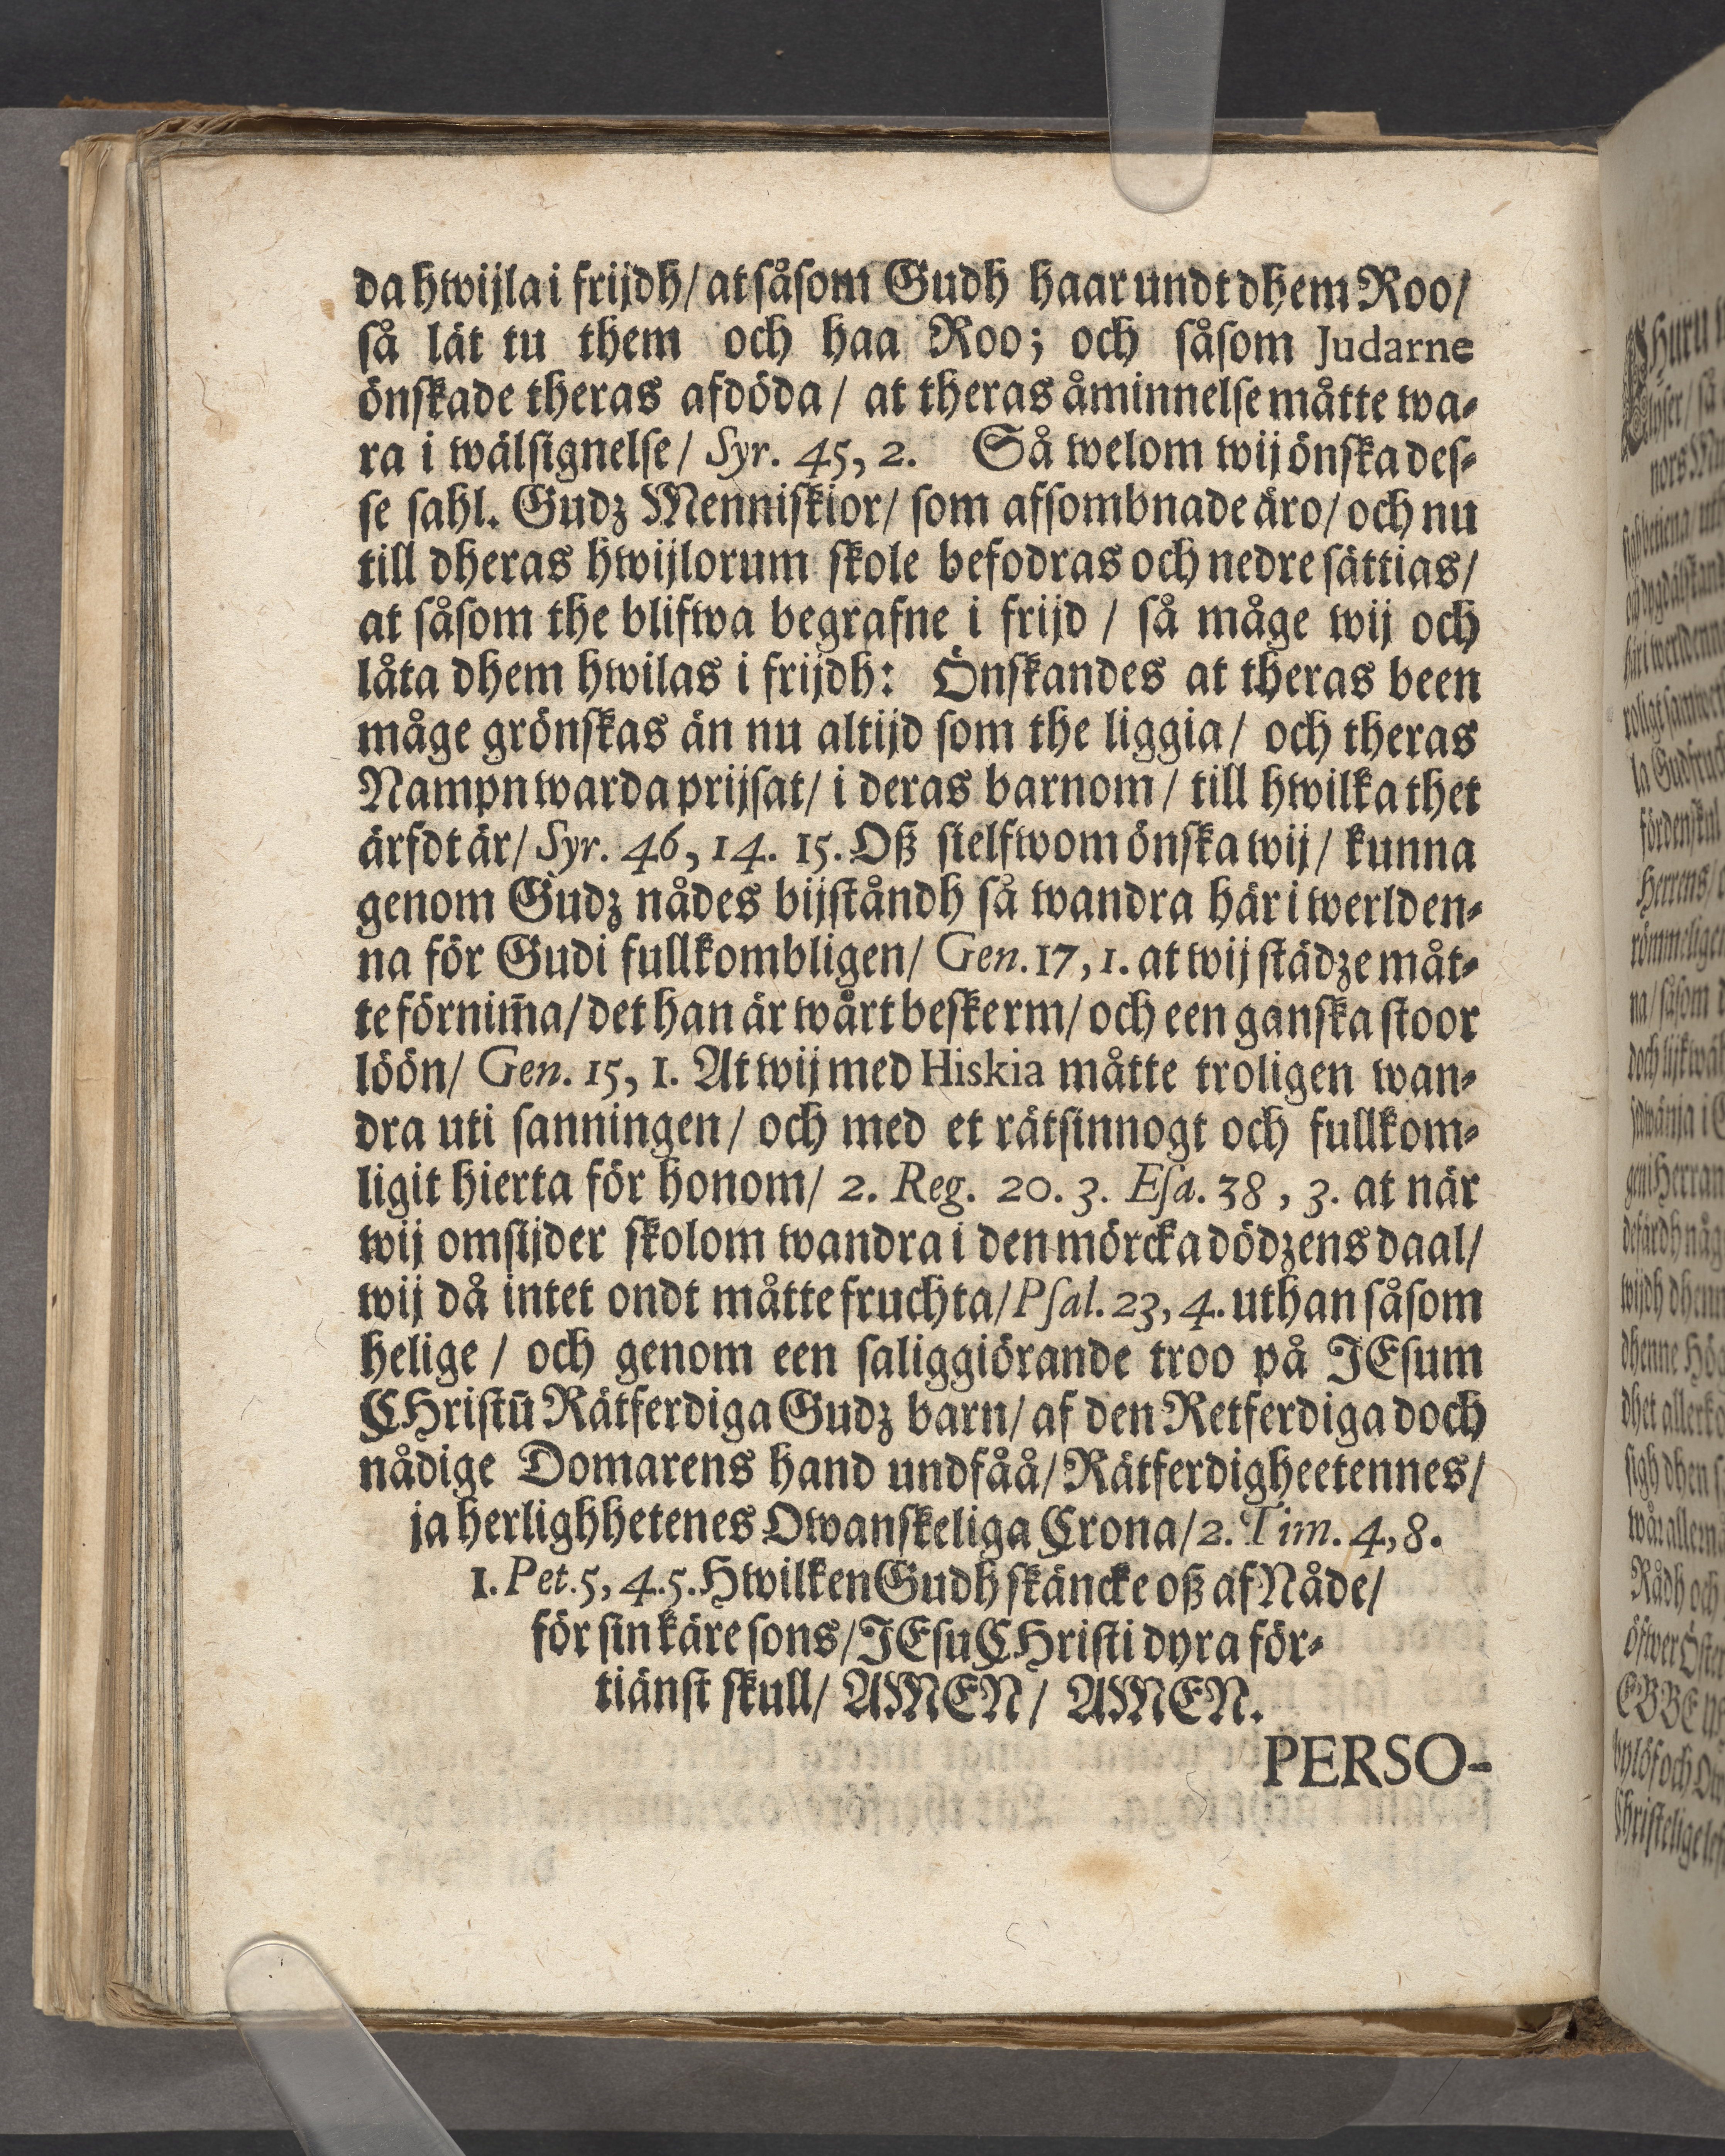 da hwijla i frijdh/ at såsom Gudh haar undt dhem Roo/
så lät tu them och haa Roo; och såsom Judarne
önskade theras afdöda/ at theras åminnelse måtte wa-
ra i wälsignelse/ Syr. 45, 2. Så welom wij önska des-
se sahl. Gudz Menniskior/ som afsombnade äro/ och nu
till dheras hwijlorum skole befodras och nedre sättias/
at såsom the blifwa begrafne i frijd / så måge wij och
låta dhem hwilas i frijdh: Önskandes at theras been
måge grönskas än nu altijd som the liggia/ och theras
Nampn warda prijsat/ i deras barnom/ till hwilka thet
ärfdt är/ Syr. 46, 14. 15. Oß sielfwom önska wij/ kunna
genom Gudz nådes bijståndh så wandra här i werlden-
na för Gudi fullkombligen/ Gen. 17, 1. at wij städze måt-
te förnim̄a/ det han är wårt beskerm/ och een ganska stoor
löön/ Gen. 15, 1. At wij med Hiskia måtte troligen wan-
dra uti sanningen/ och med et rätsinnogt och fullkom-
ligit hierta för honom/ 2. Reg. 20. 3. Esa. 38, 3. at när
wij omsijder skolom wandra i den mörcka dödzens daal/
wij då intet ondt måtte fruchta/ Psal. 23, 4. uthan såsom
helige / och genom een saliggiörande troo på JEsum
CHristū Rätferdiga Gudz barn/ af den Retferdiga doch
nådige Domarens hand undfåå/ Rätferdigheetennes/
ja herlighhetenes Owanskeliga Crona/ 2. Tim. 4, 8.
1. Pet. 5, 4. 5. Hwilken Gudh skäncke oß af Nåde/
för sin käre sons/ JEsu CHristi dyra för-
tiänst skull/ AMEN/ AMEN.
PERSO-